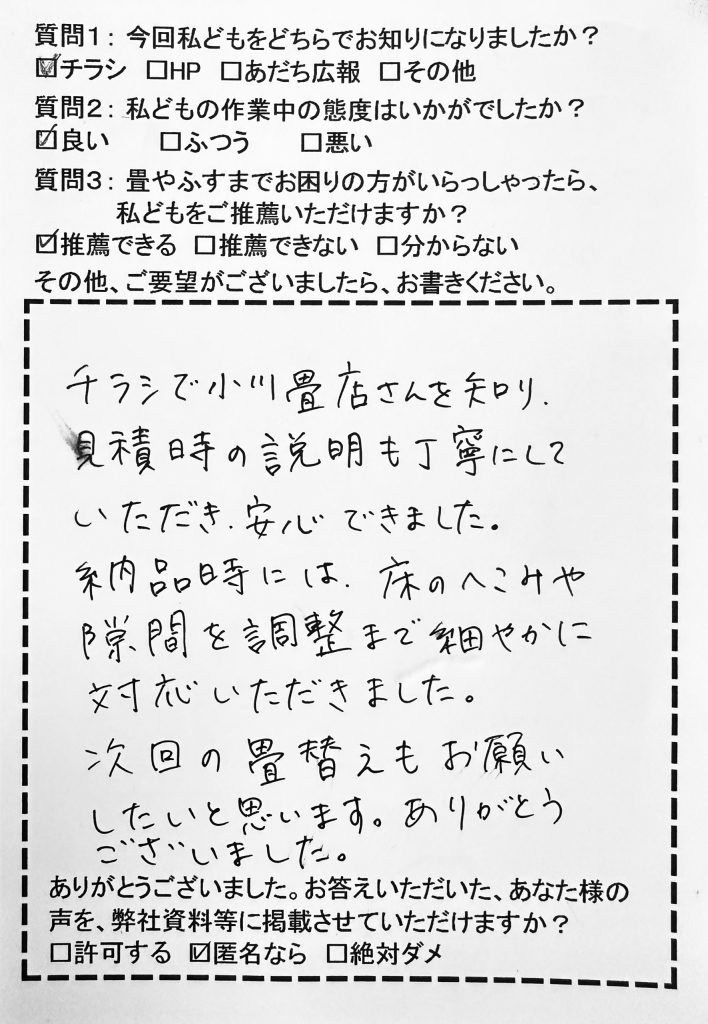 質問1：今回私どもをどちらでお知りになりましたか？
☑チラシ □HP □あだち広報 □その他
質問2：私どもの作業中の態度はいかがでしたか？
☑良い □ふつう □悪い
質問3：畳やふすまでお困りの方がいらっしゃったら、
私どもをご推薦いただけますか？
☑推薦できる □推薦できない □分からない
その他、ご要望がございましたら、お書きください。
チラシで小川畳店さんを知り、
見積時の説明も丁寧にして
いただき、安心できました。
納品時には、床のへこみや
隙間を調整まで細やかに
対応いただきました。
次回の畳替えもお願い
したいと思います。ありがとう
ございました。
ありがとうございました。お答えいただいた、あなた様の
声を、弊社資料等に掲載させていただけますか？
□許可する ☑匿名なら □絶対ダメ